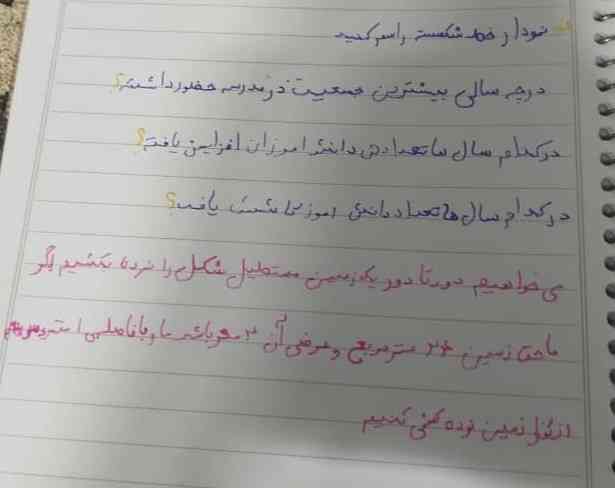 نمودار خط شکسته رسم کنید
در چه سالی بیشترین جمعیت در مدرسه حضور داشتند؟
در کدام سال ها تعداد دانش اموزان افزایش یافت؟
در کدام سال ها تعداد دانش اموزان یافت؟
می خواهیم دور تا دور یک زمین مستطیل شکل را نرده بکشیم اگر
مساحت زمین ۲۴ متر مربع و عرض آن ۳ متر باشد با فاصله ی ۱ متر
از زمین نرده کشی کنیم